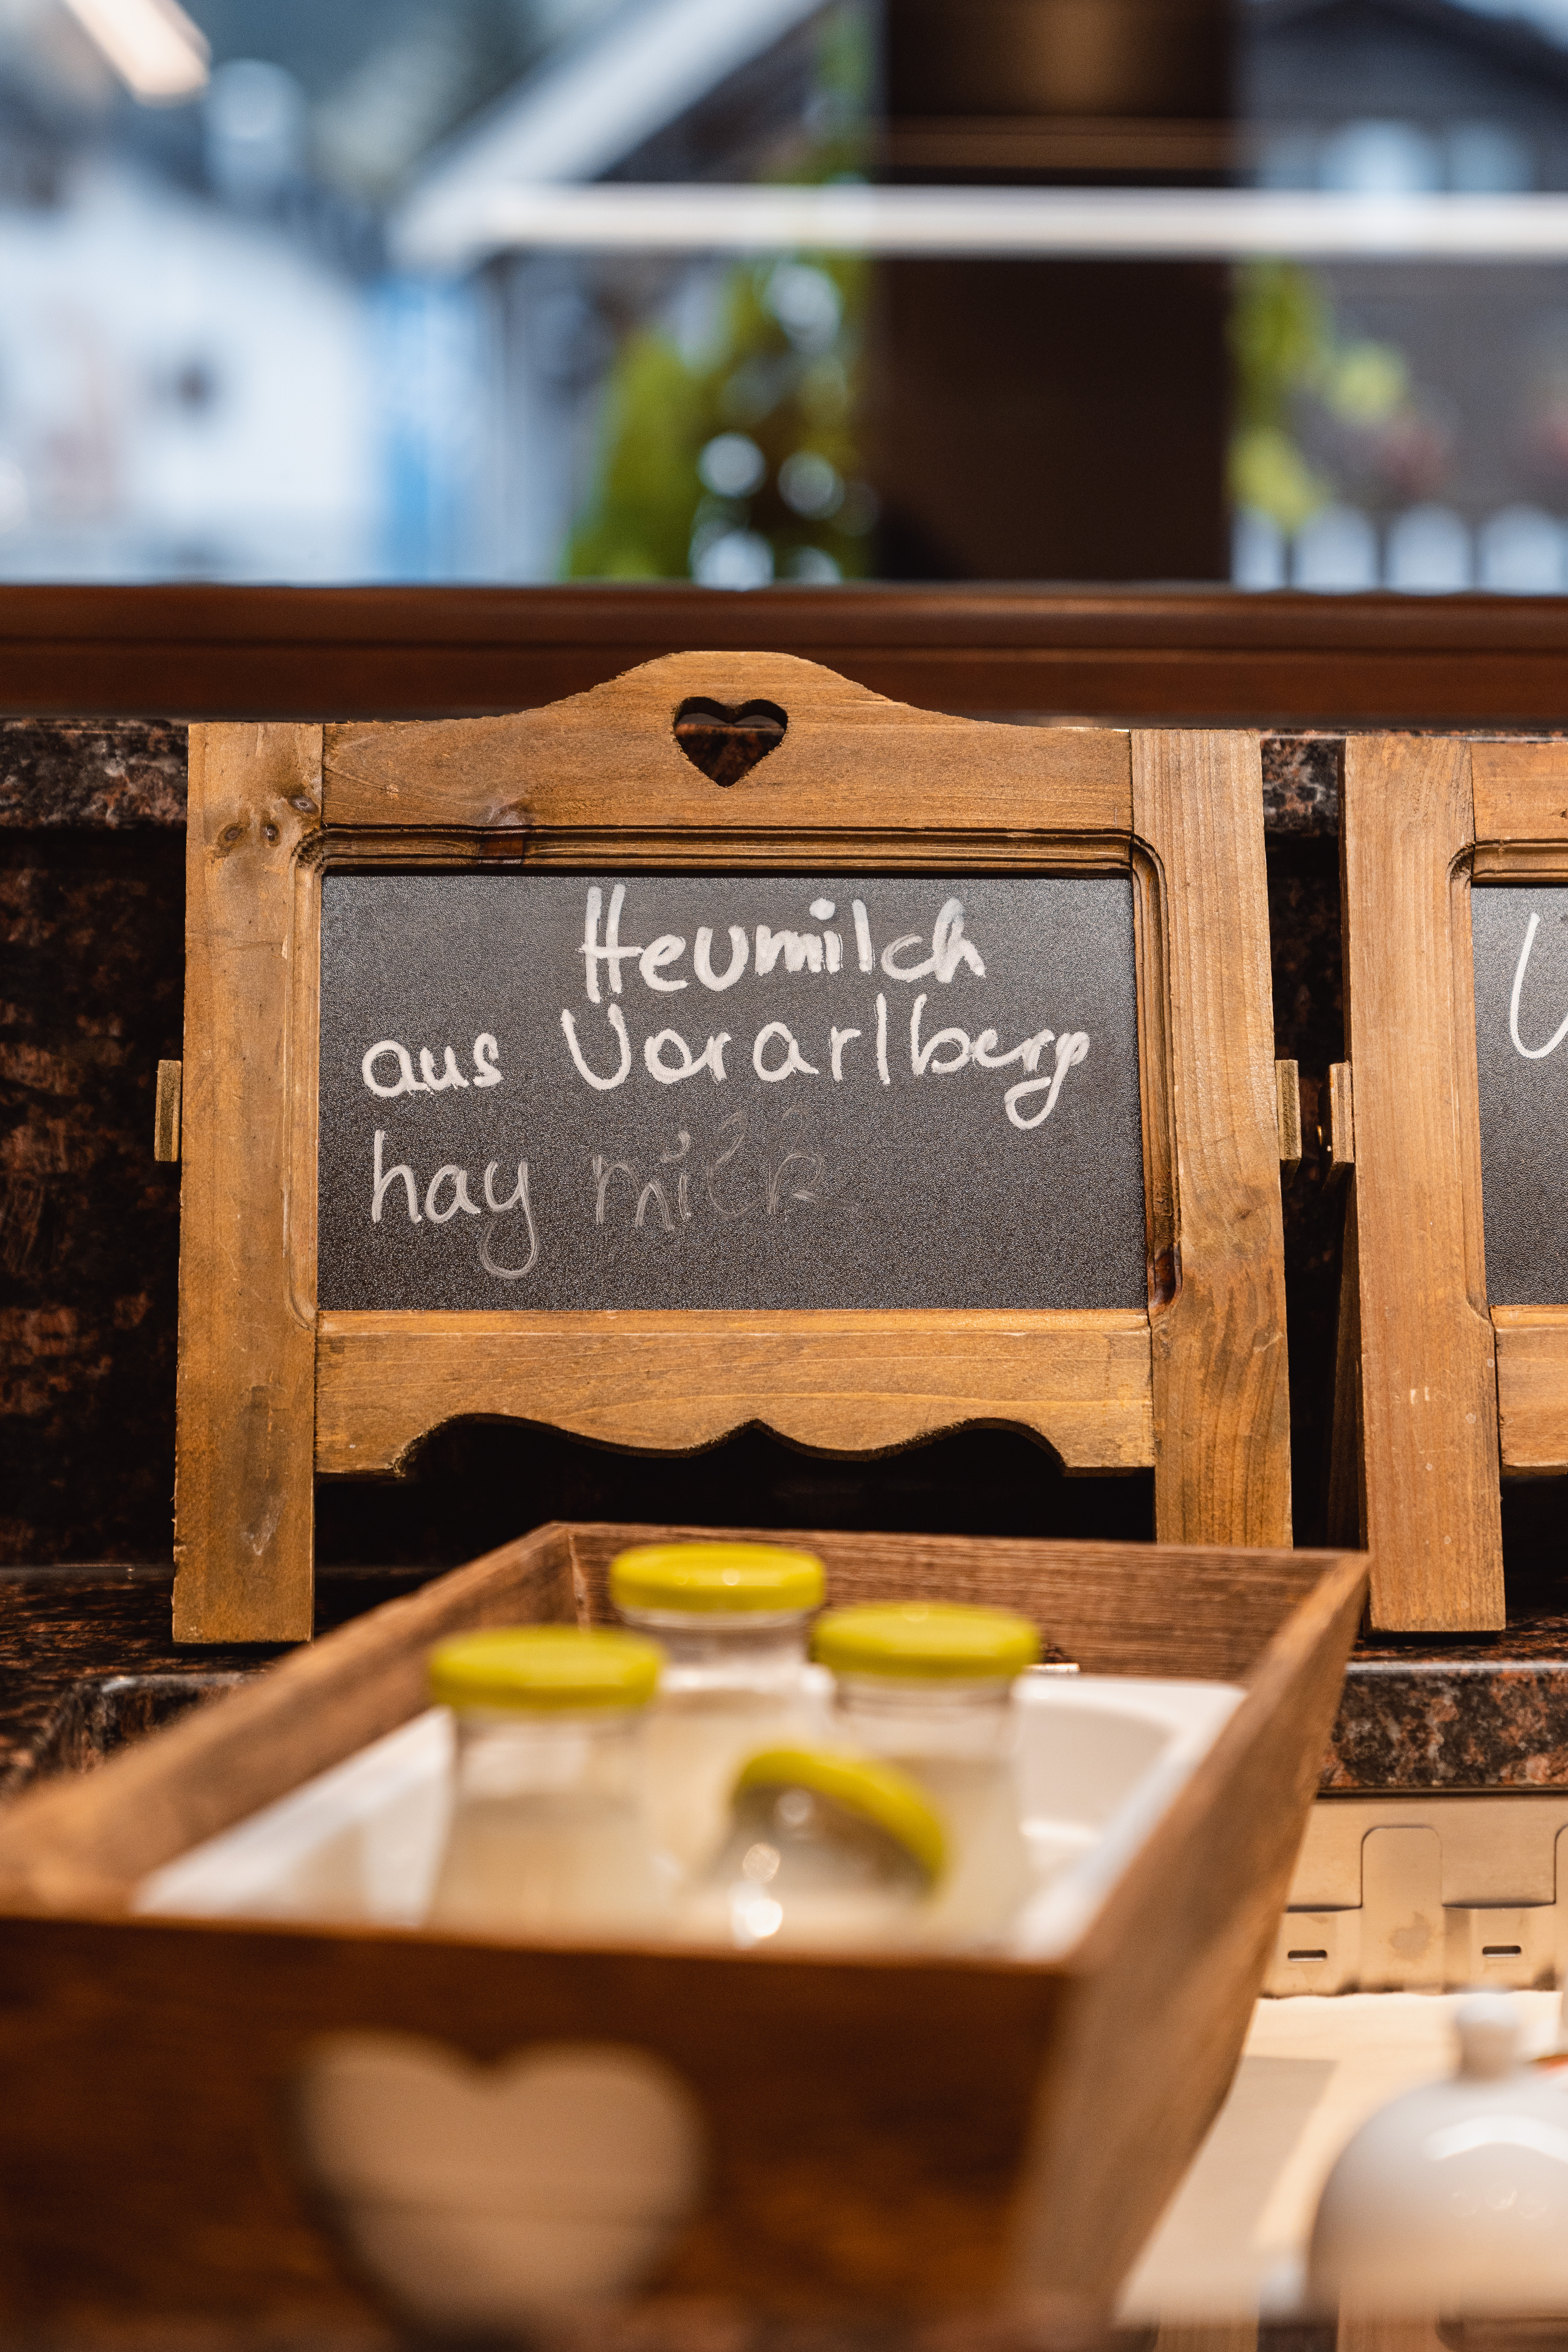 Heumilch
aus Vorarlberg
hay milk